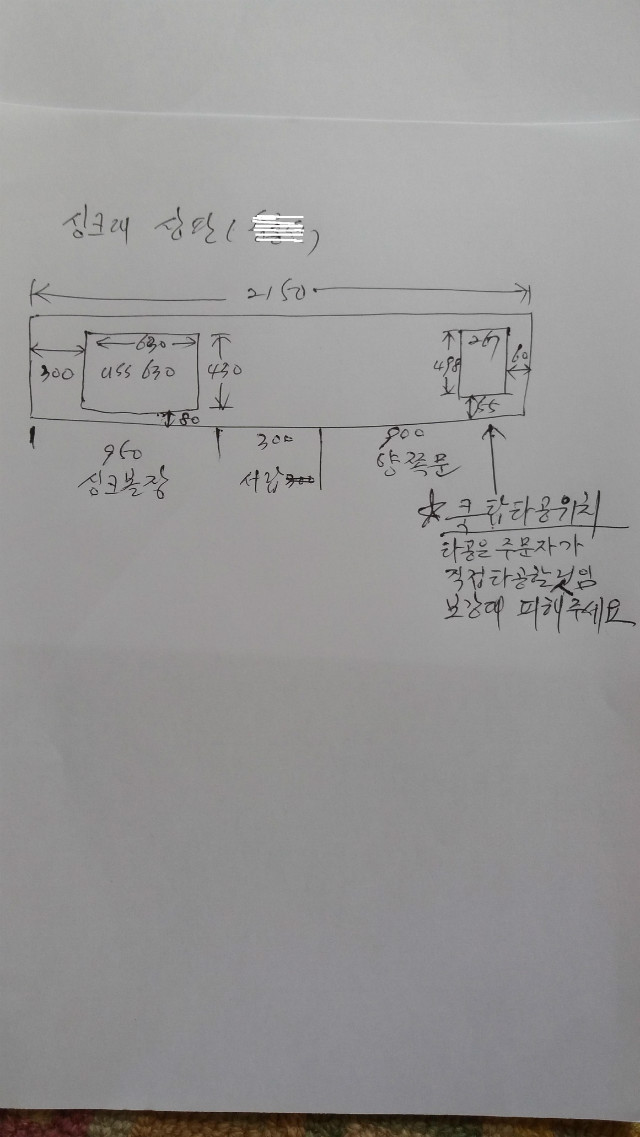 싱크대 상판 (
2150
630
267
300
uss 630
430
498
60
80
55
950
300
900
싱크볼장
서랍
양쪽문
★ 쿡탑타공위치
타공은 주문자가
직접타공할 것임
보강대 피해주세요